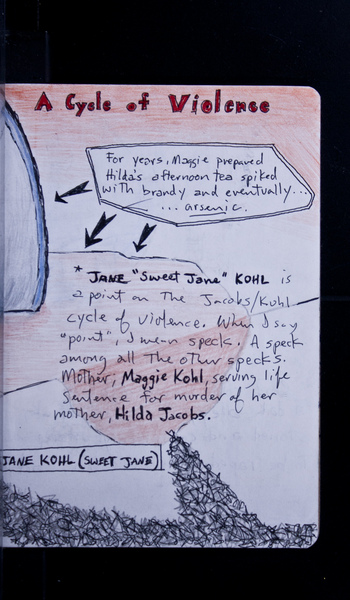 A Cycle of Violence
For years, Maggie prepared
Hilda's afternoon tea spiked
with brandy and eventually...
... arsenic.
* JANE "Sweet Jane" KOHL is
a point on the Jacobs/Kohl
cycle of violence. When I say
"point", I mean speck. A speck
among all the other specks.
Mother, Maggie Kohl, serving life
sentence for murder of her
mother, Hilda Jacobs.
JANE KOHL (SWEET JANE)